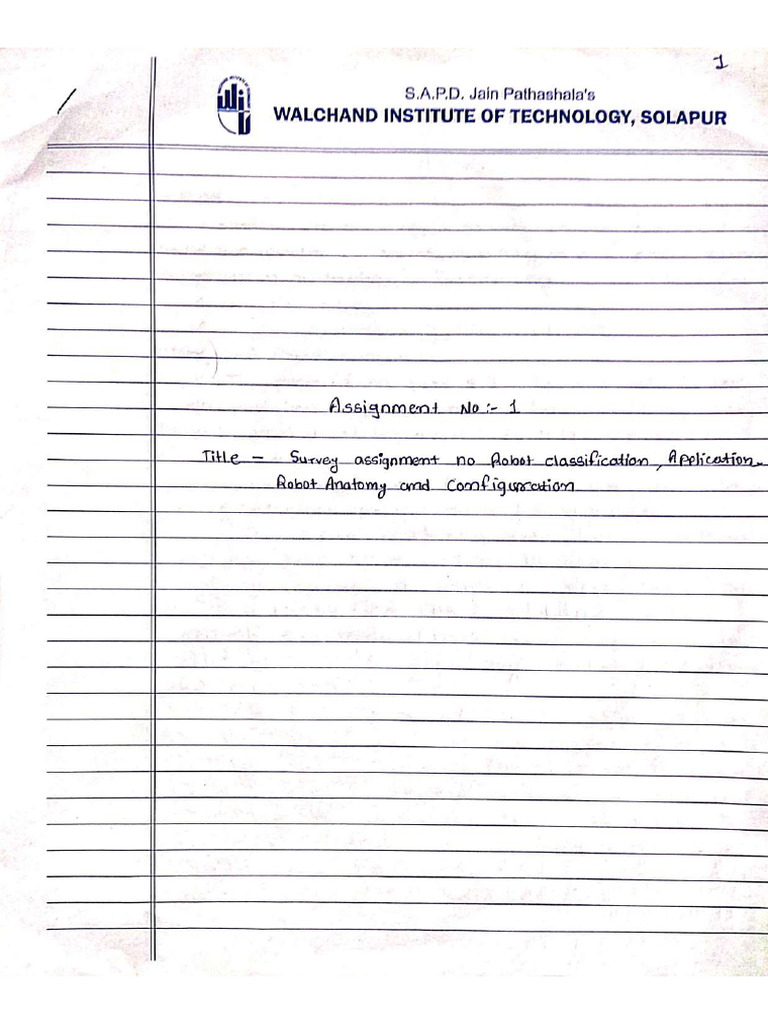 1
S.A.P.D. Jain Pathashala's
WALCHAND INSTITUTE OF TECHNOLOGY, SOLAPUR
Assignment No :- 1
Title - Survey assignment no Robot classification, Application
Robot Anatomy and Configuration